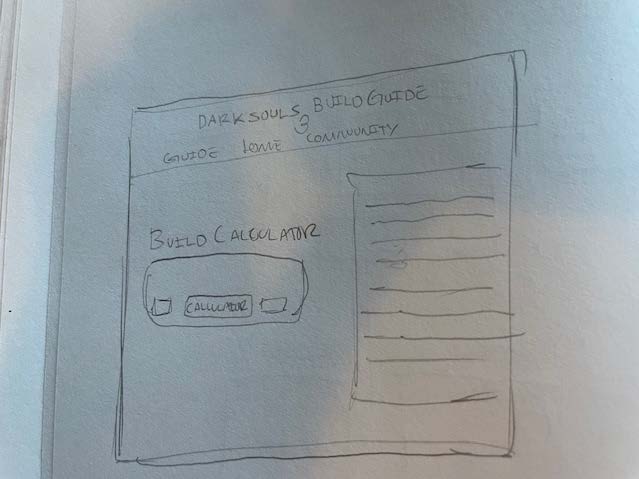 DARK SOULS 3 BUILD GUIDE
GUIDE HOME COMMUNITY
BUILD CALCULATOR
CALCULATOR